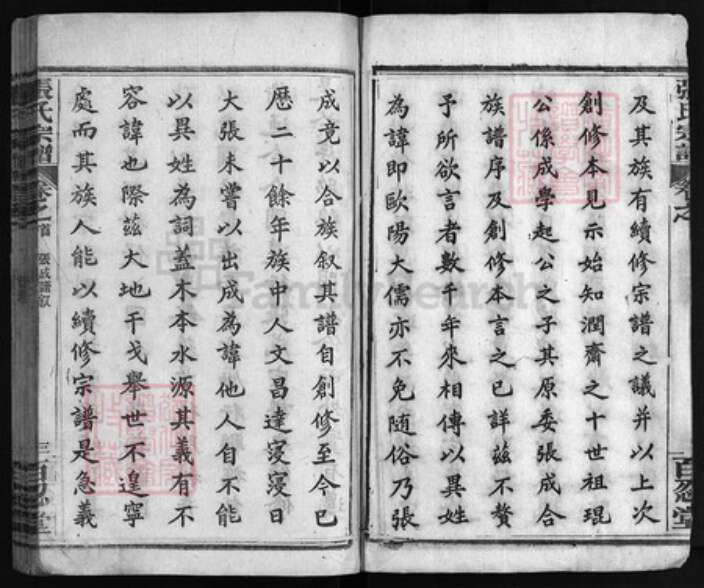 及其族有續修宗譜之議并以上次
創修本見示始知潤齋之十世祖琨
公係成學起公之子其原委張成合
族譜序及創修本言之已詳茲不贅
予所欲言者數千年來相傳以異姓
為諱即歐陽大儒亦不免随俗乃張
成竟以合族叙其譜自創修至今已
歷二十餘年族中人文昌達寖寖日
大張未嘗以出成為諱他人自不能
以異姓為詞蓋木本水源其義有不
容諱也際茲大地干戈舉世不遑寧
處而其族人能以續修宗譜是急義
張氏宗譜
卷之
百忍堂
張氏宗譜 卷之首 張成譜叙 三 百忍堂
FamilySearch